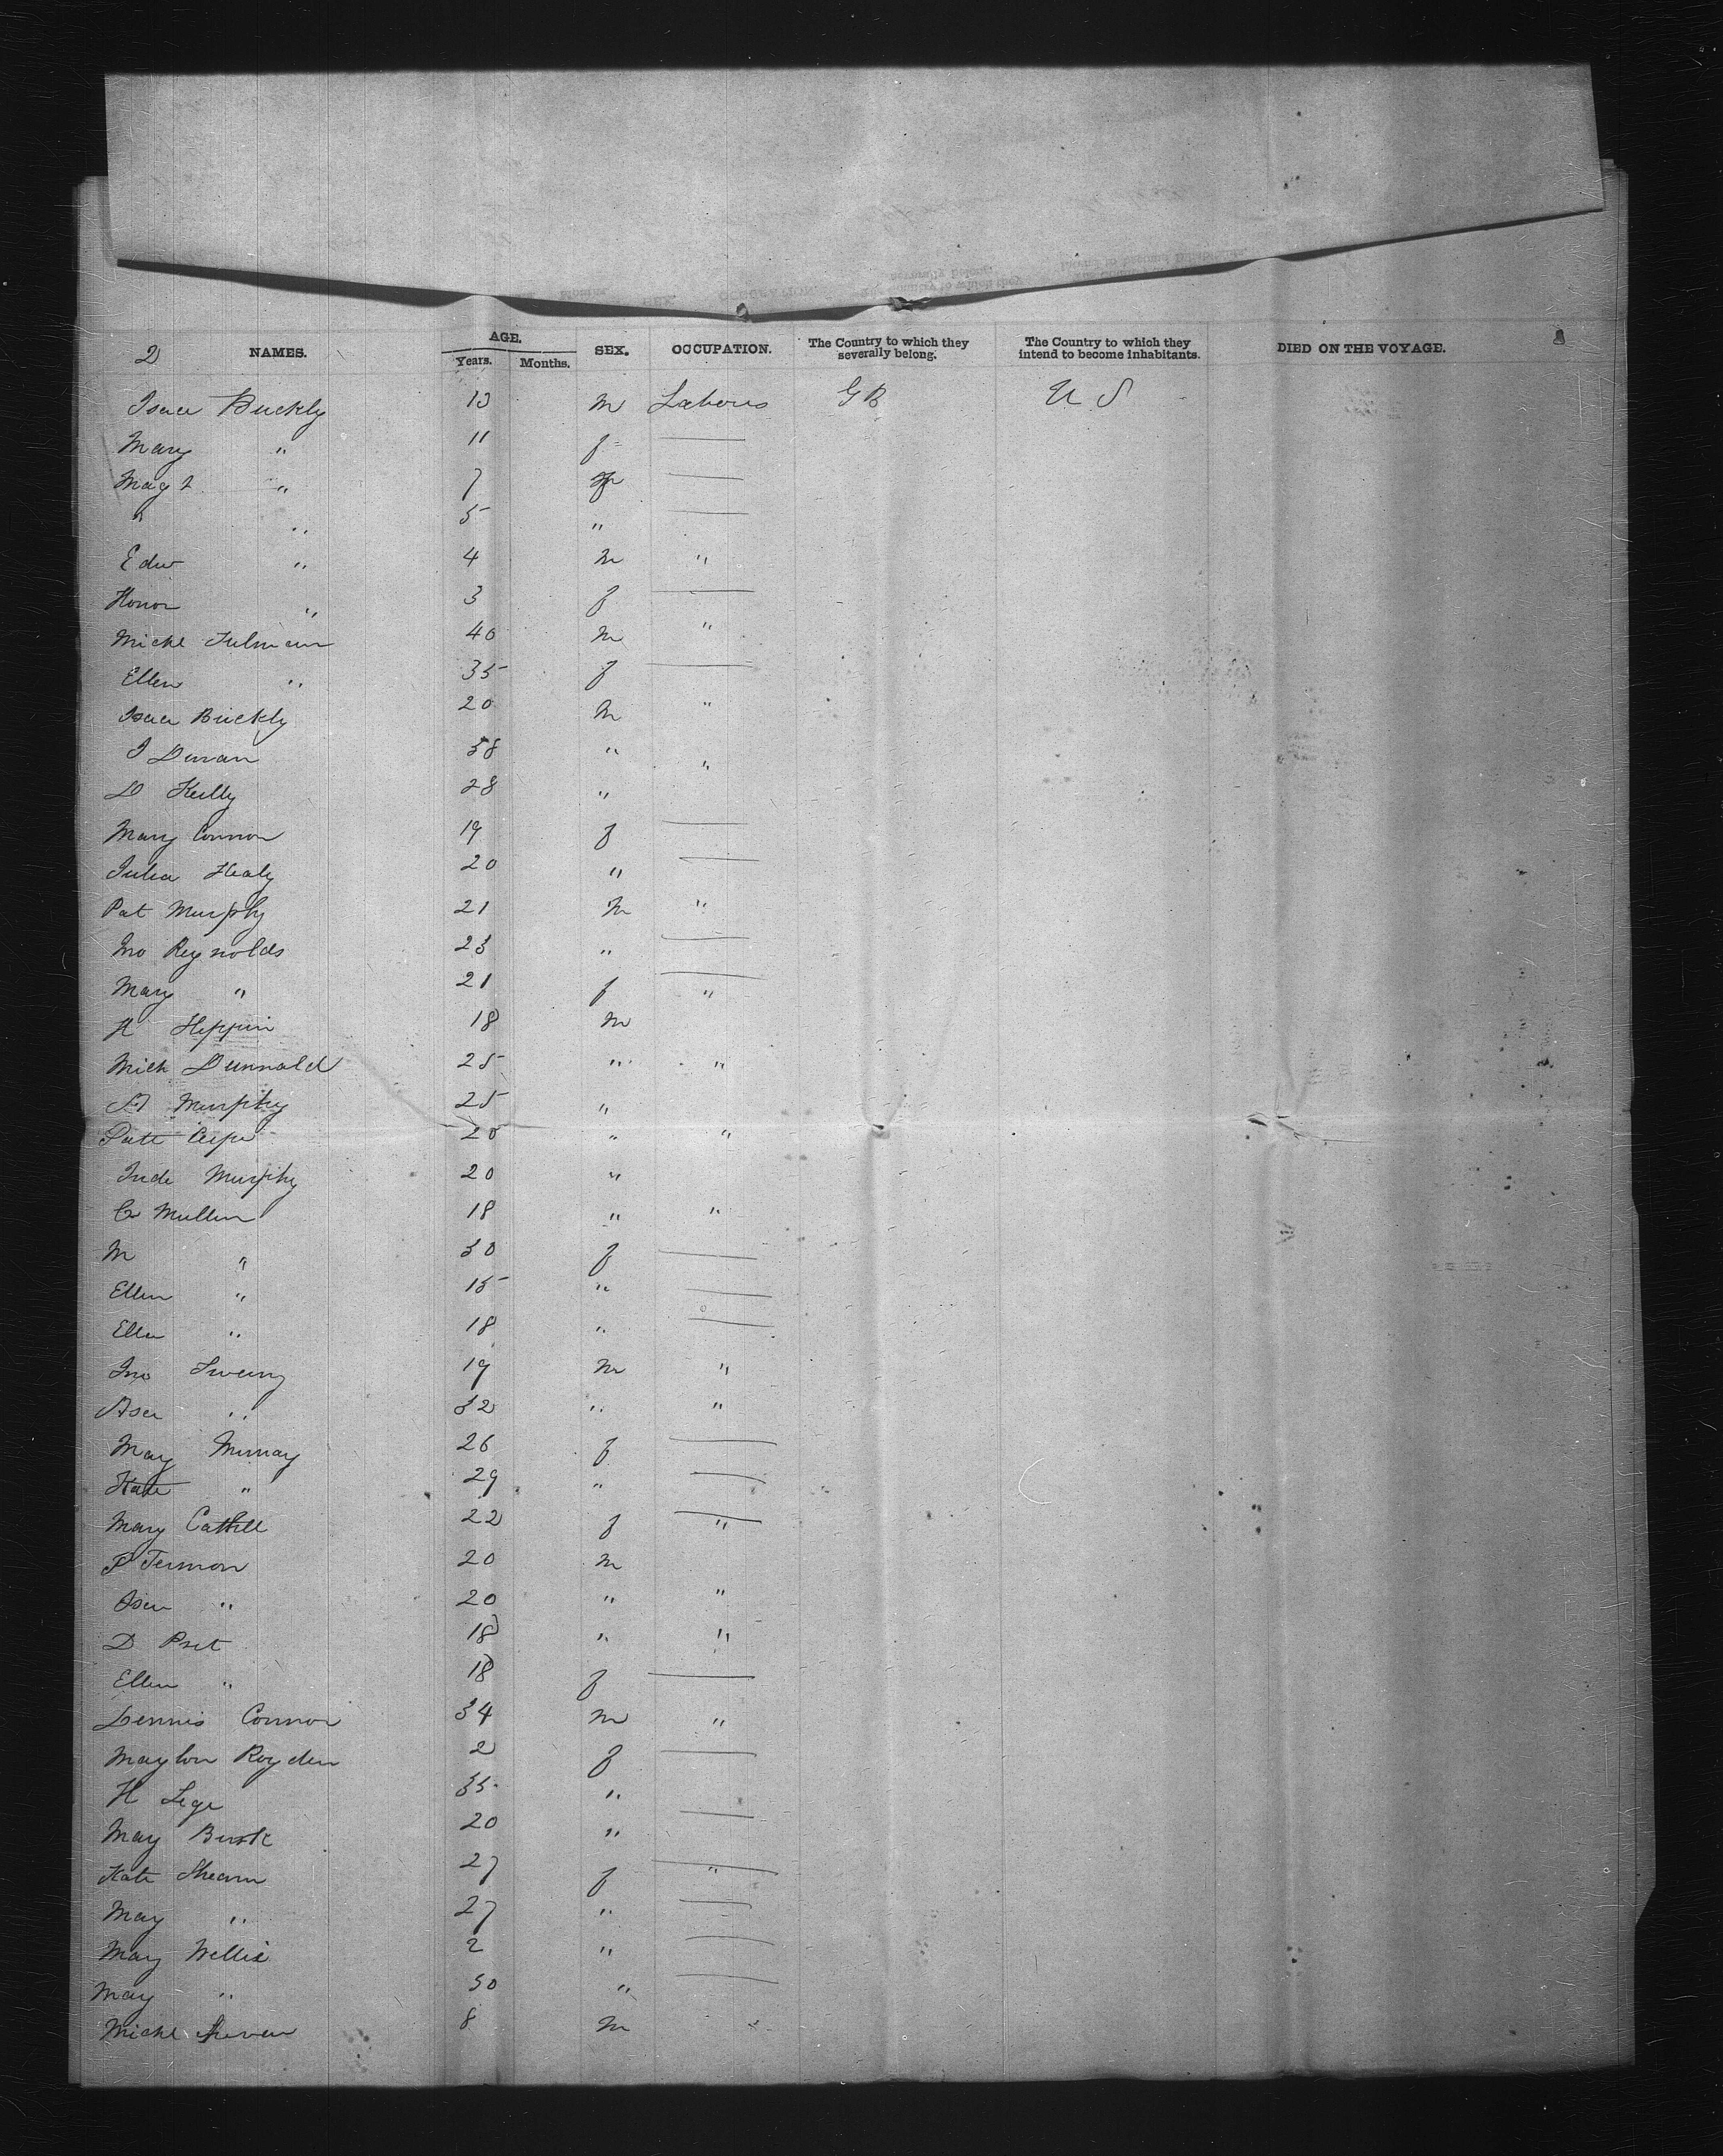 2 NAMES. AGE. Years. Months. SEX. OCCUPATION. The Country to which they severally belong. The Country to which they intend to become inhabitants. DIED ON THE VOYAGE.
Isaa Buckly 13 m Labours GB U S
Mary " 11 f —
Magt " 7 f —
" 5 " —
Edw " 4 m "
Honor " 3 f —
Michl 40 m "
Ellen " 35 f —
Isaa Buckly 20 m "
J Duran 38 " "
D Kelly 28 "
Mary Connor 19 f —
Julia Healy 20 " —
Pat Murphy 21 m "
Jno Reynolds 23 " —
Mary " 21 f "
H Heppin 18 m
Mich Dunnald 25 " "
A Murphy 25 "
20 " "
Murphy 20 "
C Mullen 18 " "
M " 30 f —
Ellen " 15 " —
Ellen " 18 " —
Jno Sweeny 19 m "
" 32 " "
May Murray 26 f —
Kate " 29 " —
Mary Cathill 22 f "
P Termon 20 m
" 20 " "
D Pret 18 " "
Ellen " 18 f —
Dennis Connor 34 m "
Royden 2 f —
H Lege 35 "
May Burk 20 " —
Kate Shearn 27 f "
May " 27 " —
May Wellis 2 " —
May " 50 " —
Michl 8 m "